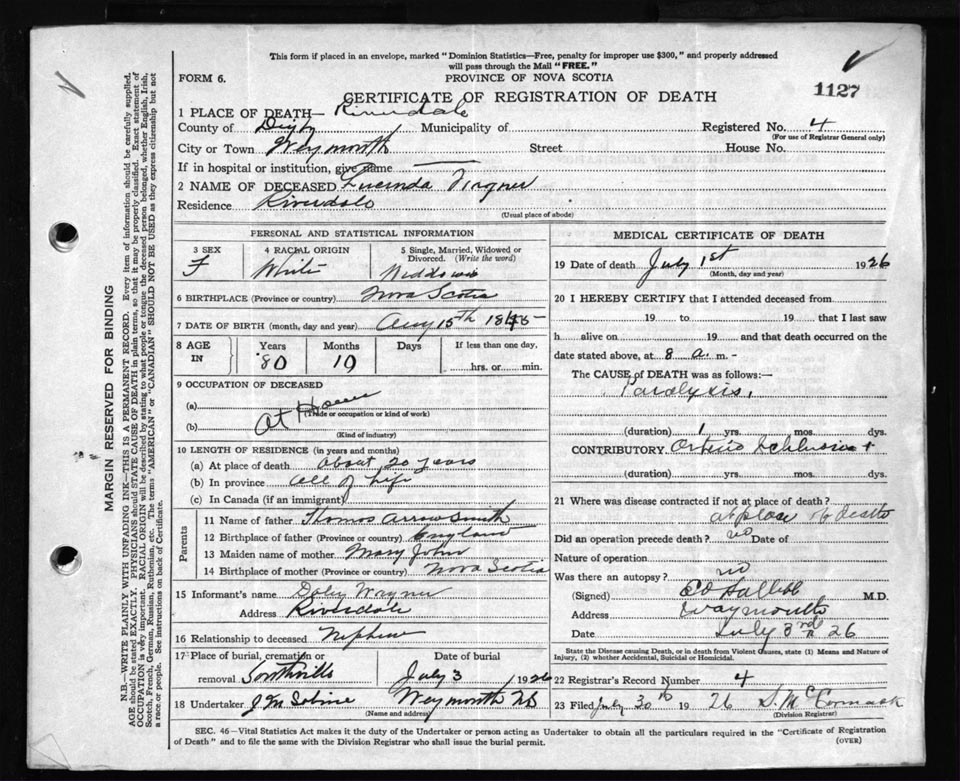 This form if placed in an envelope, marked "Dominion Statistics—Free, penalty for improper use $300," and properly addressed
will pass through the Mail "FREE."
FORM 6.
PROVINCE OF NOVA SCOTIA
1127
CERTIFICATE OF REGISTRATION OF DEATH
1 PLACE OF DEATH— Riverdale
County of Digby Municipality of Registered No. 4
(For use of Registrar General only)
City or Town Weymouth Street House No.
If in hospital or institution, give name
2 NAME OF DECEASED Lucinda
Residence Riverdale
(Usual place of abode)
PERSONAL AND STATISTICAL INFORMATION
3 SEX 4 RACIAL ORIGIN 5 Single, Married, Widowed or
Divorced. (Write the word)
F White
6 BIRTHPLACE (Province or country) Nova Scotia
7 DATE OF BIRTH (month, day and year) Aug 15th 1845
8 AGE IN Years Months Days If less than one day,
80 10 hrs. or min.
9 OCCUPATION OF DECEASED
(a) At Home
(Trade or occupation or kind of work)
(b)
(Kind of industry)
10 LENGTH OF RESIDENCE (in years and months)
(a) At place of death about 20 years
(b) In province all of life
(c) In Canada (if an immigrant)
Parents
11 Name of father Thomas Arrowsmith
12 Birthplace of father (Province or country) England
13 Maiden name of mother Mary John
14 Birthplace of mother (Province or country) Nova Scotia
15 Informant's name Wagner
Address Riverdale
16 Relationship to deceased Nephew
17 Place of burial, cremation or Date of burial
removal Southville July 3 1926
18 Undertaker J M Sabine Weymouth NS
(Name and address)
MEDICAL CERTIFICATE OF DEATH
19 Date of death July 1st 1926
(Month, day and year)
20 I HEREBY CERTIFY that I attended deceased from
19 to 19 that I last saw
h alive on 19 and that death occurred on the
date stated above, at 8 a. m.-
The CAUSE of DEATH was as follows:—
Paralysis.
(duration) 1 yrs. mos. dys.
CONTRIBUTORY
(duration) yrs. mos. dys.
21 Where was disease contracted if not at place of death?
at place of death
Did an operation precede death? no Date of
Nature of operation
Was there an autopsy? no
(Signed) M.D.
Address Weymouth
Date July 3rd 26
State the Disease causing Death, or in death from Violent Causes, state (1) Means and Nature of
Injury, (2) whether Accidental, Suicidal or Homicidal.
22 Registrar's Record Number 4
23 Filed July 30th 1926 S. McCormack
(Division Registrar)
SEC. 46—Vital Statistics Act makes it the duty of the Undertaker or person acting as Undertaker to obtain all the particulars required in the "Certificate of Registration
of Death" and to file the same with the Division Registrar who shall issue the burial permit.
(OVER)
MARGIN RESERVED FOR BINDING
N.B.—WRITE PLAINLY WITH UNFADING INK—THIS IS A PERMANENT RECORD. Every item of information should be carefully supplied.
AGE should be stated EXACTLY. PHYSICIANS should STATE CAUSE OF DEATH in plain terms, so that it may be properly classified. Exact statement of
OCCUPATION is very important. RACIAL ORIGIN will be described by stating to what people or tongue the deceased person belonged, whether English, Irish,
Scotch, French, German, Russian, Ruthenian, etc. The terms "AMERICAN" or "CANADIAN" SHOULD NOT BE USED as they express citizenship but not
a race or people. See instructions on back of Certificate.